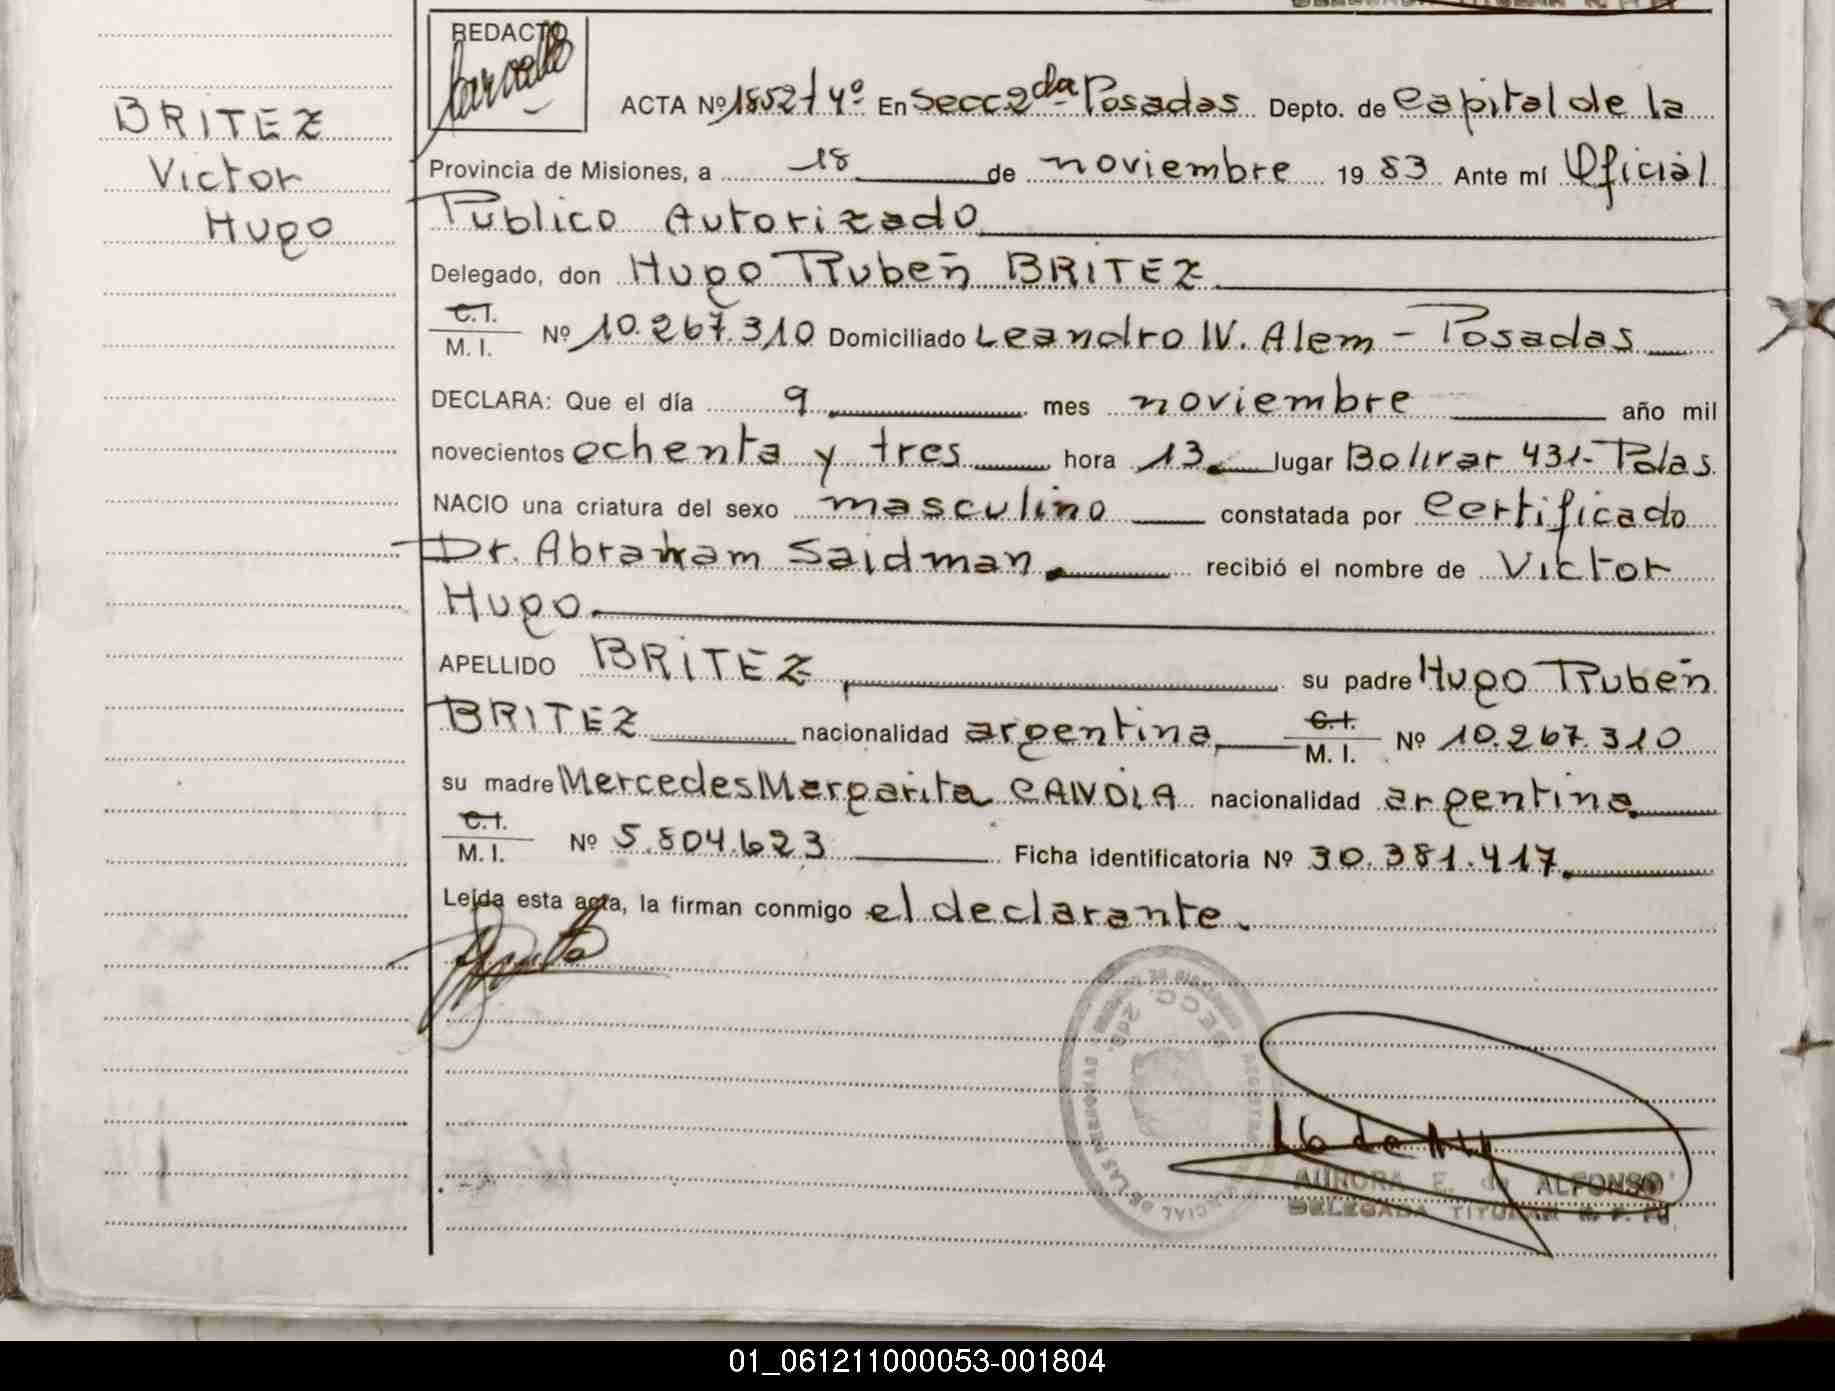 REDACTO
BRITEZ
Victor
Hugo
ACTA Nº 1852 t 4º En Secc 2da Posadas Depto. de Capital de la
Provincia de Misiones, a 18 de noviembre 1983 Ante mí Oficial
Publico Autorizado
Delegado, don Hugo Rubén BRITEZ
C.I. M. I. Nº 10.267.310 Domiciliado Leandro N. Alem - Posadas
DECLARA: Que el día 9 mes noviembre año mil
novecientos ochenta y tres hora 13 lugar Bolivar 431- Pdas
NACIO una criatura del sexo masculino constatada por Certificado
Dr. Abraham Saidman recibió el nombre de Victor
Hugo
APELLIDO BRITEZ su padre Hugo Rubén
BRITEZ nacionalidad argentina C.I. M. I. Nº 10.267.310
su madre Mercedes Margarita CANDIA nacionalidad argentina
C.I. M. I. Nº 5.804.623 Ficha identificatoria Nº 30.381.417
Leída esta acta, la firman conmigo el declarante.
SECC. 2da.
AURORA E. de ALFONSO
DELEGADA TITULAR R. P. P.
01_061211000053-001804